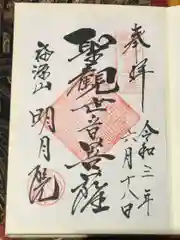 奉拝
令和三年
六月十八日
聖観世音菩薩
海源山
明月院